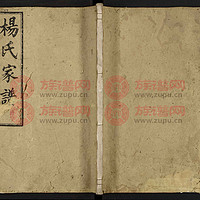 楊氏家譜
族譜网
www.zupu.cn
族譜网
www.zupu.cn